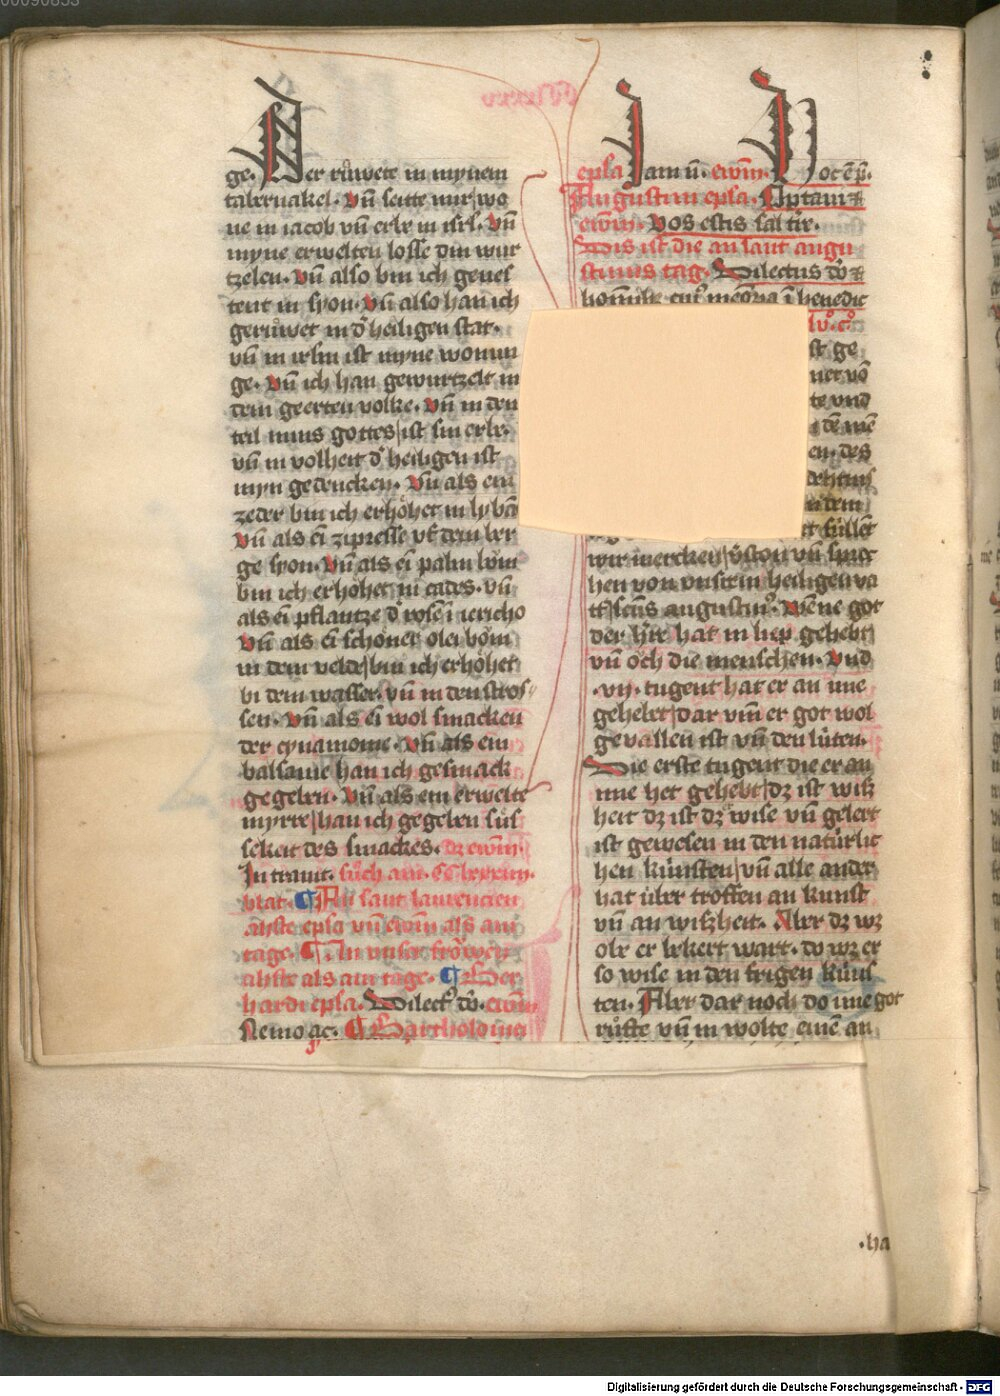 ge. Der růwete in mynem
tabernakel. Vn̄ seite mir wo
ne in iacob vn̄ erbe in isrl. Vn̄
myne erwelten losse din wur
tzelen. Vn̄ also bin ich geves
tent in syon. Vn̄ also han ich
gerůwet in d̕ heiligen stat.
vn̄ in irl̄m ist myne wonun
ge. Vn̄ ich han gewurtzelt in
dem geerten volke. Vn̄ in den
teil mins gottes ist sin erbe.
vn̄ in volheit d̕ heiligen ist
myn gedencken. Vn̄ als ein
zeder bin ich erhöhet in lybā
Vn̄ als ei̅ zipresse vf dem ber
ge syon. Vn̄ als ei̅ palm bŏm
bin ich erhöhet in cades. vn̄
als ei̅ pflantze d̕ rosen i̅ iericho
Vn̄ als ei̅ schöner olei bŏm
in dem velde bin ich erhöhet
bi dem wasser. vn̄ in den stros
sen. Vn̄ als ei̅ wol smacken
der cynamome. Vn̄ als ein
balsame han ich gesmack
gegeben. Vn̄ als ein erwelte
myrre han ich gegeben süs
sekeit des smackes. dz ewm̄.
Intrauit. sůch am
blat. ¶ An sant laurencien
ahste epl̄a vn̄ ewm̄ als am
tage. ¶ An unser frŏwen
ahste als am tage. ¶ Ber
hardi epl̄a. Dilect9 dō. ewm̄
Nemo ac. ¶ Bartholome
epl̄a Iam n̄. ewm̄.
Augustini epl̄a. Optaui
ewm̄. Vos estis sal t̅r̅.
Dis ist die an sant augu
stinus tag. Dilectus dō
st ge
net vō
te vnd
dē mē
en. des
n dem
t füllet
wir mercken
hen von vnserm heiligen va
augustin9. Wene got
der h̅re hat in liep gehebt
vn̄ ŏch die menschen. Vnd
.vij. tugent hat er an ime
gehebet dar vm̅ er got wol
gevallen ist vn̄ den lüten.
Die erste tugent die er an
ime het gehebt dz ist wisz
heit dz ist dz wise vn̄ gelert
ist gewesen in den natürlic
hen künsten vn̄ alle ander
hat über troffen an kunst
vn̄ an wiszheit. Aber dz wz
obe er bekert wart. do wz er
so wise in den frigen küns
ten. Aber dar noch do ime got
růfte vn̄ in wolte einē an
.ha
Digitalisierung gefördert durch die Deutsche Forschungsgemeinschaft - DFG